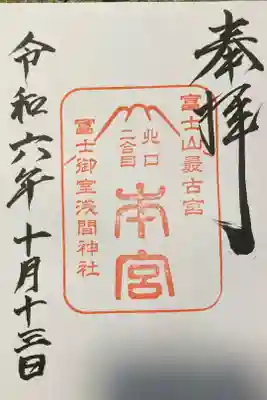 奉拝
冨士山最古宮
北口
二合目
本宮
冨士御室浅間神社
令和六年十月十三日